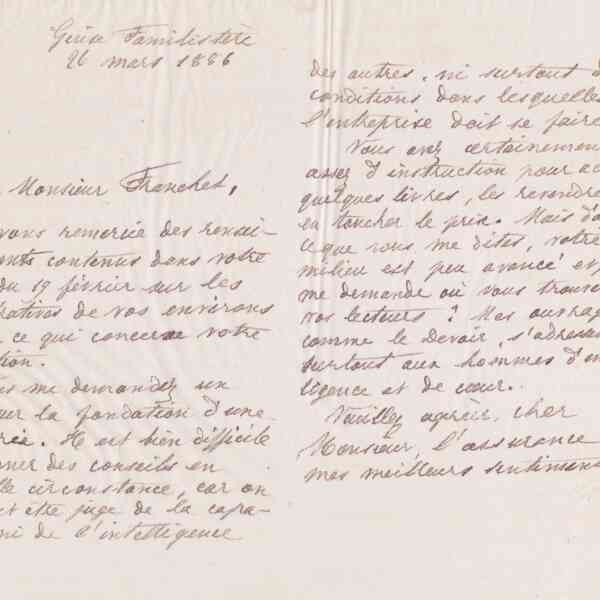 Guise Familistère
26 mars 1886
Monsieur Franchet,
vous remercie des rensei-
ents contenus dans votre
du 19 février sur les
ratives de vos environs
ce qui concerne votre
tion.
me demandez un
sur la fondation d'une
rée. Il est bien difficile
ner des conseils en
lle circonstance, car on
être juge de la capa-
ni de l'intelligence
des autres, ni surtout d
conditions dans lesquelles
l'entreprise doit se faire
Vous avez certainemen
assez d'instruction pour ac
quelques livres, les revendre
en toucher le prix. Mais d'a
ce que vous me dites, votre
milieu est peu avancé et j
me demande où vous trouve
vos lecteurs? Mes ouvrag
comme le devoir, s'adresse
surtout aux hommes d'in
ligence et de cœur.
Veuillez agréer, cher
Monsieur, l'assurance
mes meilleurs sentiments